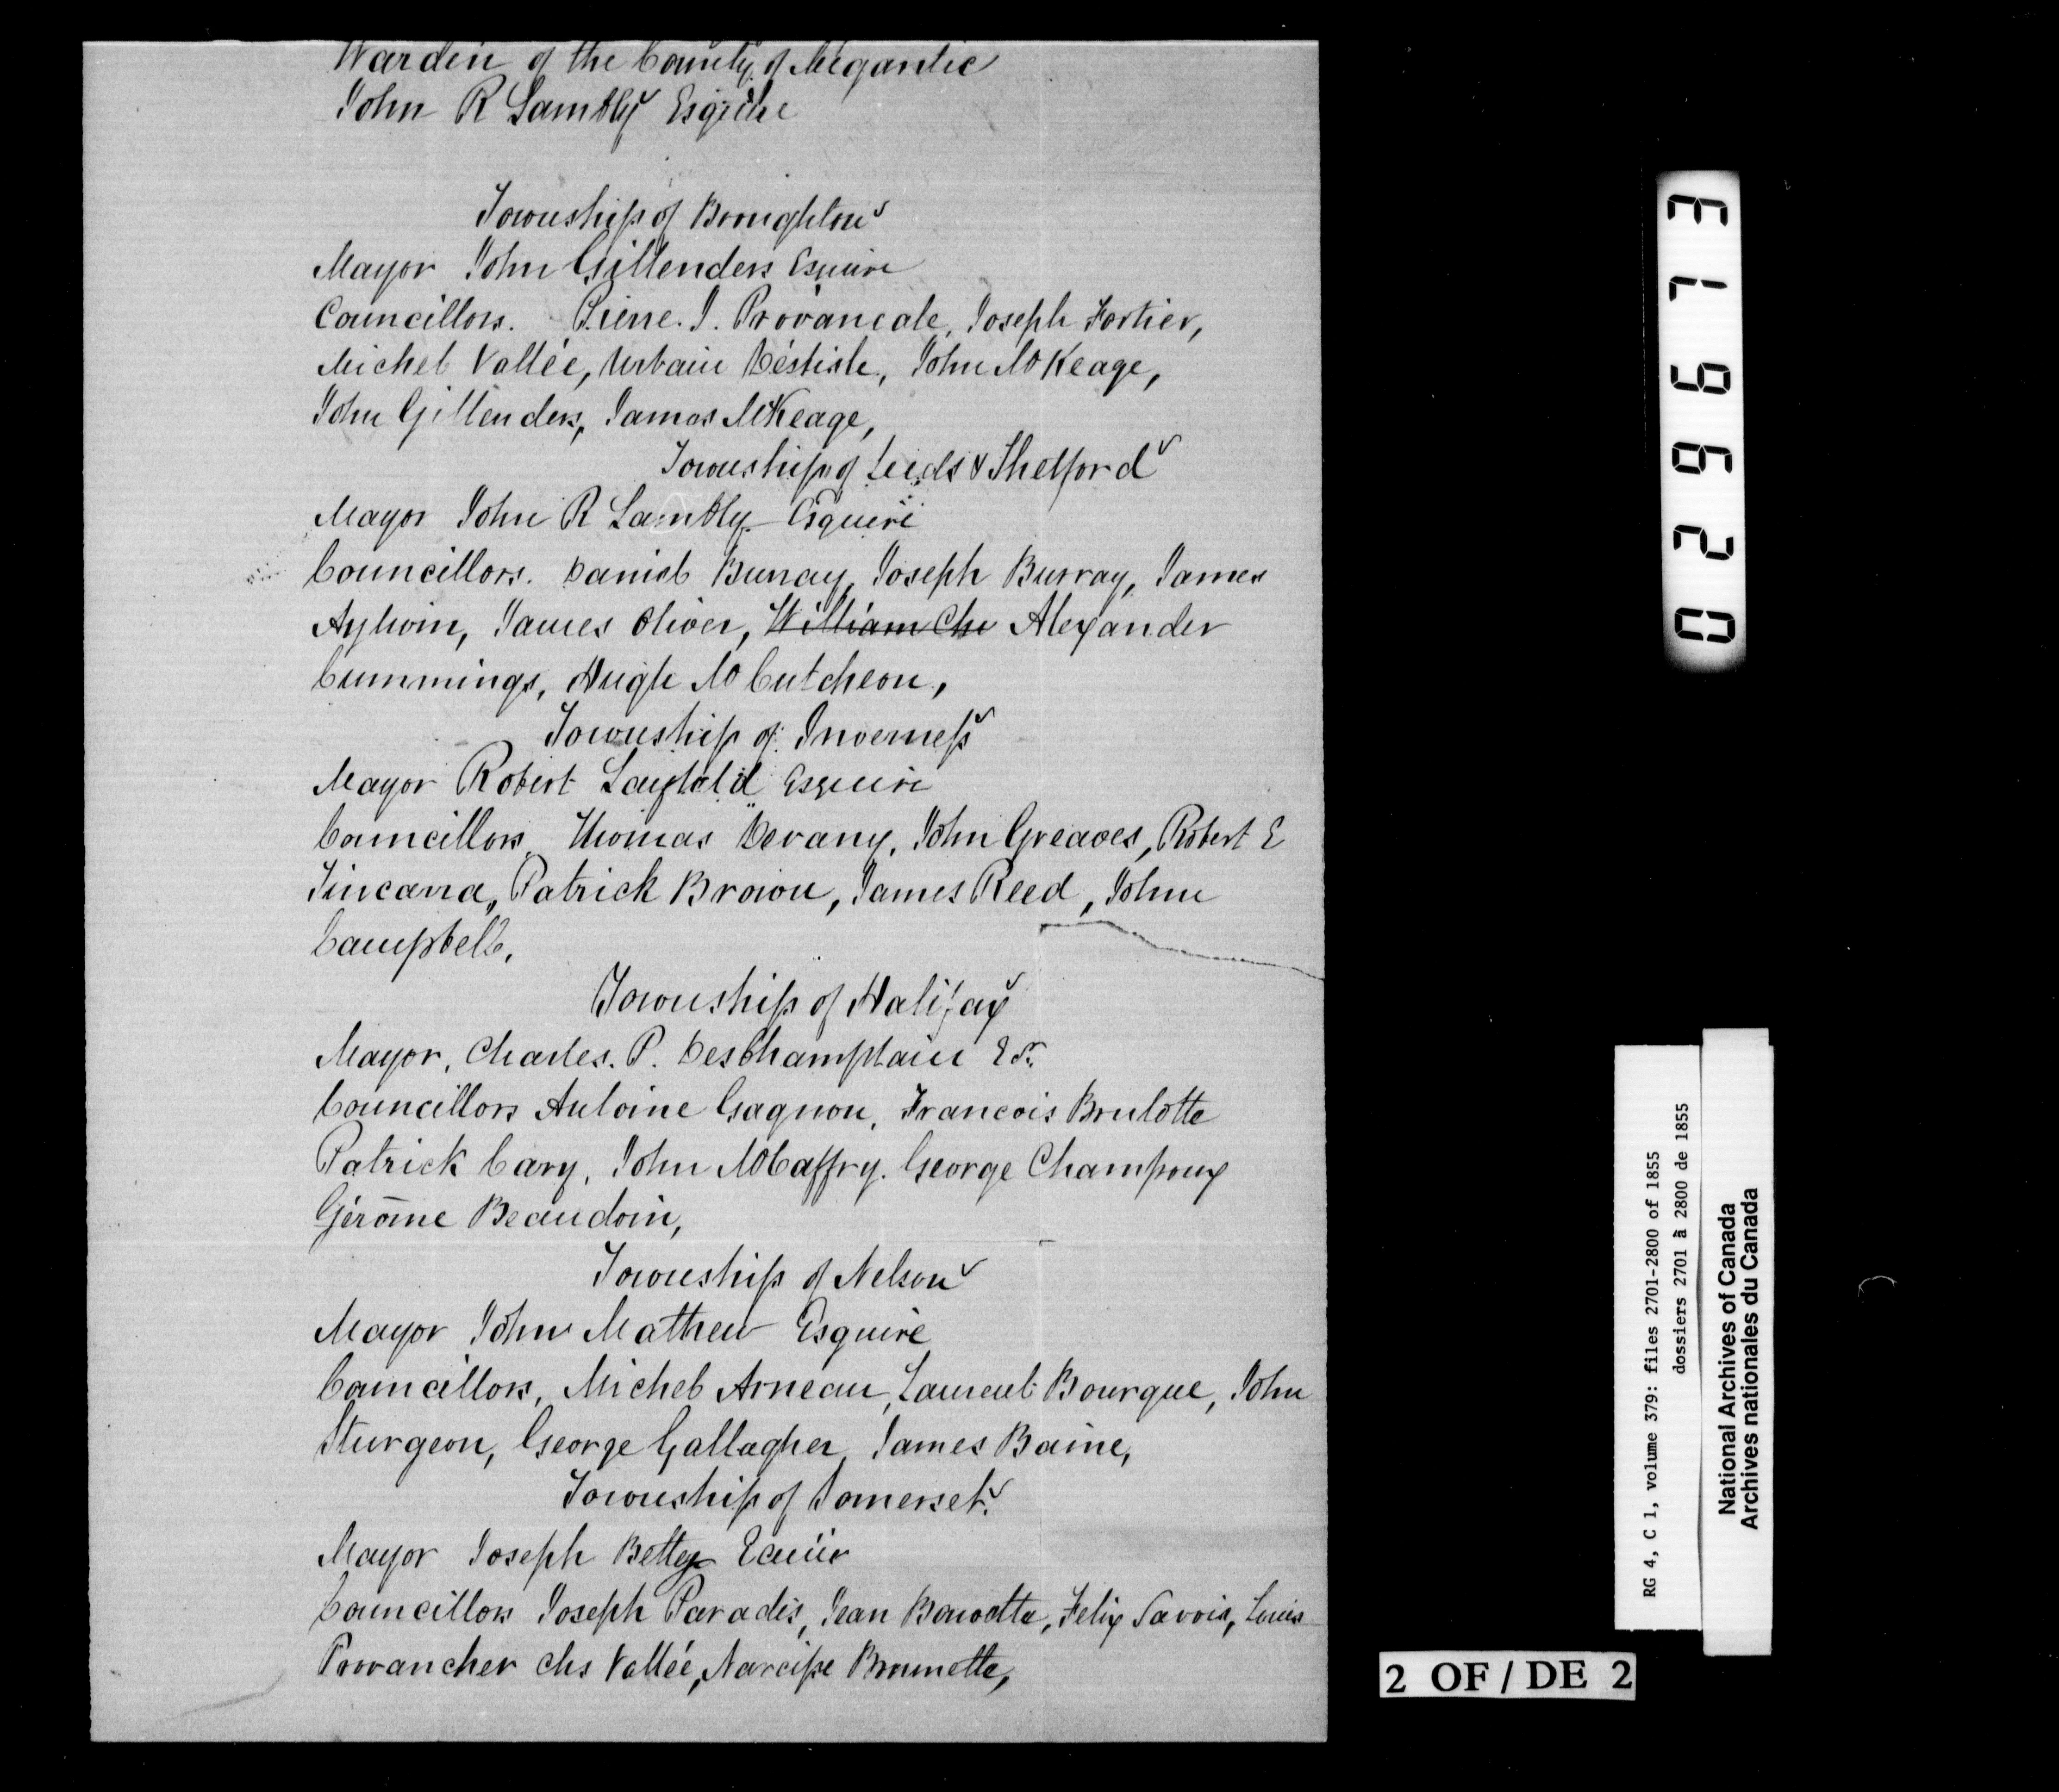 Warden of the County of Megantic
John R Lambly Esquire
Township of Broughton
Mayor John Gillenders Esquire
Councillors. Pierre. J. Provancale, Joseph Fortier,
Michel Vallée, Urbain Béslisle, John McKeage,
John Gillenders, James McKeage,
Township of Leeds & Thetford
Mayor John R Lambly Esquire
Councillors. Daniel Burray, Joseph Burray, James
Aylwin, James Oliver, William Che Alexander
Cummings, Hugh McCutcheon,
Township of Inverness
Mayor Robert Layfield Esquire
Councillors, Thomas Devany, John Greaves, Robert E
Patrick Brown, James Reed, John
Campbell.
Township of Halifax
Mayor, Charles. P. DesChamplain Er.
Councillors Antoine Gagnon, Francois Brulotte
Patrick Cary, John McCaffry. George Champoux
Gérôme Beaudoin,
Township of Nelson
Mayor John Mathew Esquire
Councillors, Michel Arneau, Laurent Bourque, John
Sturgeon, George Gallagher, James Baine,
Township of Somerset.
Mayor Joseph Bettez
Councillors Joseph Paradis, Jean Felix Savoie, Louis
Provancher chs Vallée, Narcisse Brunette,
026973
RG 4, C 1, volume 379: files 2701-2800 of 1855
dossiers 2701 à 2800 de 1855
National Archives of Canada
Archives nationales du Canada
2 OF / DE 2